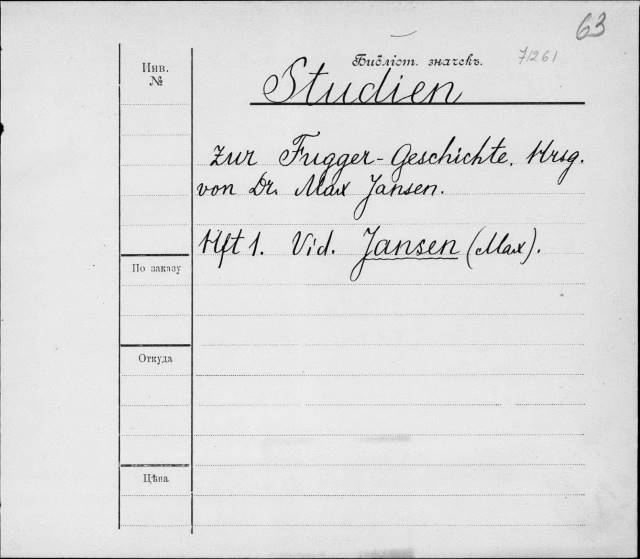 63
71261
Инв.
№
Библіот. значекъ.
Studien
zur Fugger-Geschichte. Hrsg.
von Dr. Max Jansen.
Hft 1. Vid. Jansen (Max).
По заказу
Откуда
Цѣна